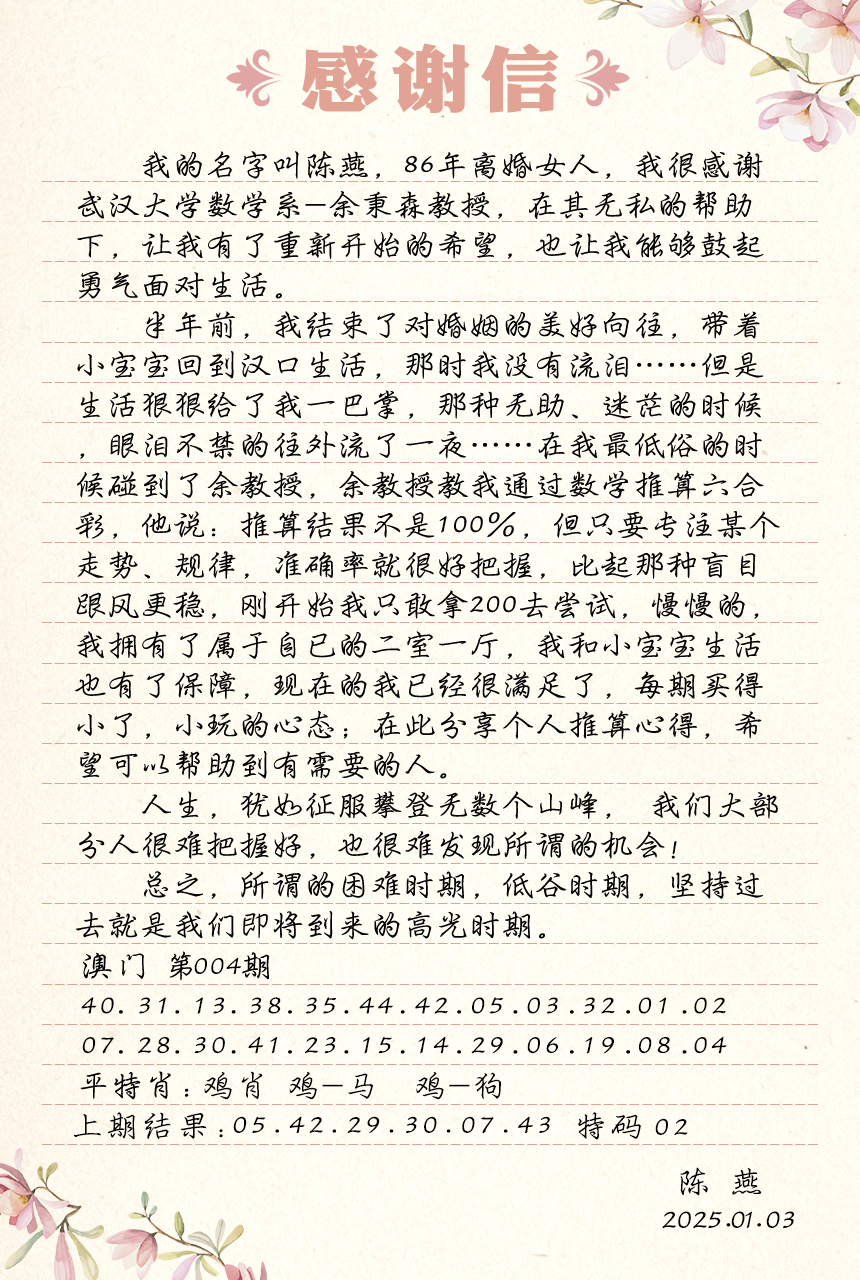 感谢信
我的名字叫陈燕，86年离婚女人，我很感谢
武汉大学数学系—余秉森教授，在其无私的帮助
下，让我有了重新开始的希望，也让我能够鼓起
勇气面对生活。
半年前，我结束了对婚姻的美好向往，带着
小宝宝回到汉口生活，那时我没有流泪……但是
生活狠狠给了我一巴掌，那种无助、迷茫的时候
，眼泪不禁的往外流了一夜……在我最低俗的时
候碰到了余教授，余教授教我通过数学推算六合
彩，他说：推算结果不是100%，但只要专注某个
走势、规律，准确率就很好把握，比起那种盲目
跟风更稳，刚开始我只敢拿200去尝试，慢慢的，
我拥有了属于自已的二室一厅，我和小宝宝生活
也有了保障，现在的我已经很满足了，每期买得
小了，小玩的心态；在此分享个人推算心得，希
望可以帮助到有需要的人。
人生，犹如征服攀登无数个山峰， 我们大部
分人很难把握好，也很难发现所谓的机会！
总之，所谓的困难时期，低谷时期，坚持过
去就是我们即将到来的高光时期。
澳门 第004期
40.31.13.38.35.44.42.05.03.32.01.02
07.28.30.41.23.15.14.29.06.19.08.04
平特肖：鸡肖 鸡—马 鸡—狗
上期结果：05.42.29.30.07.43 特码 02
陈 燕
2025.01.03